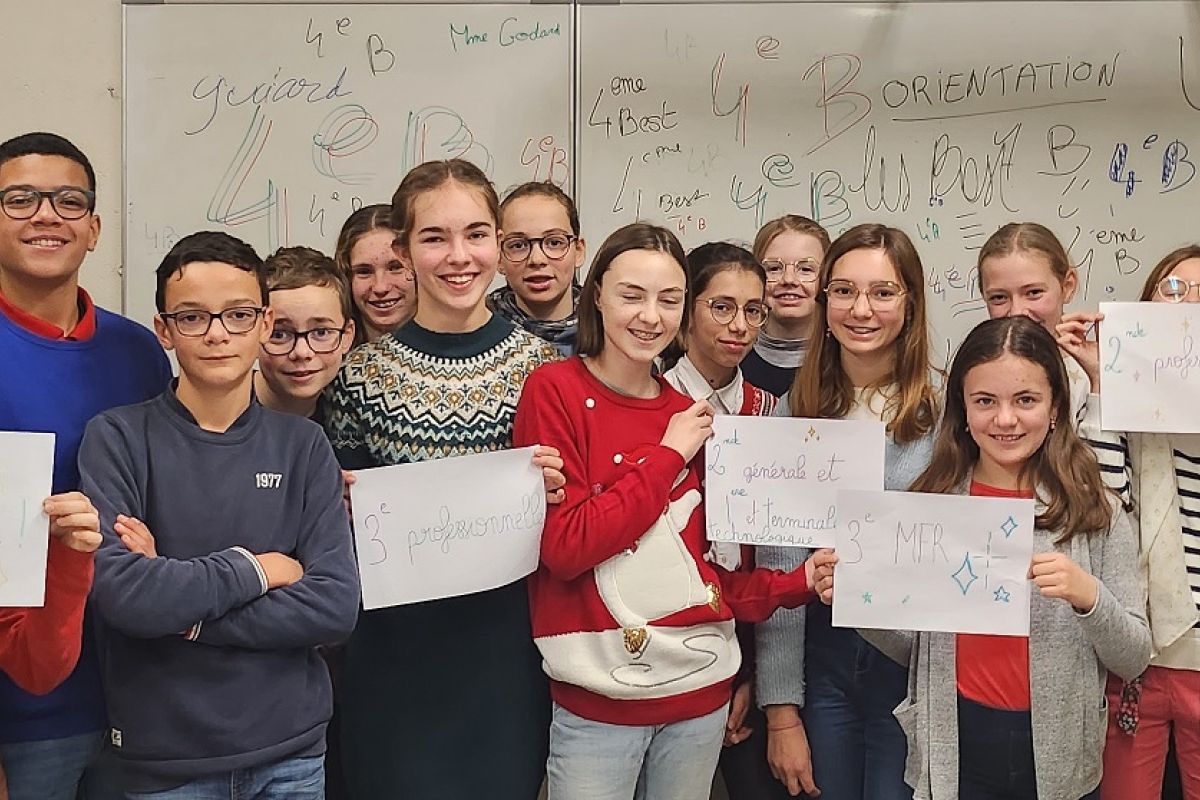 4e
B
Mme Godard
guiard
4e B
4e B
4e
4B
4eme
Best
4e B
ORIENTATION
4eme
Best
4e B
4e B les Best
B
4e B
4eme
B
1977
3e professionnelle
2nde
générale et
1ere et terminale
technologique
3e MFR
2nde
profess
!